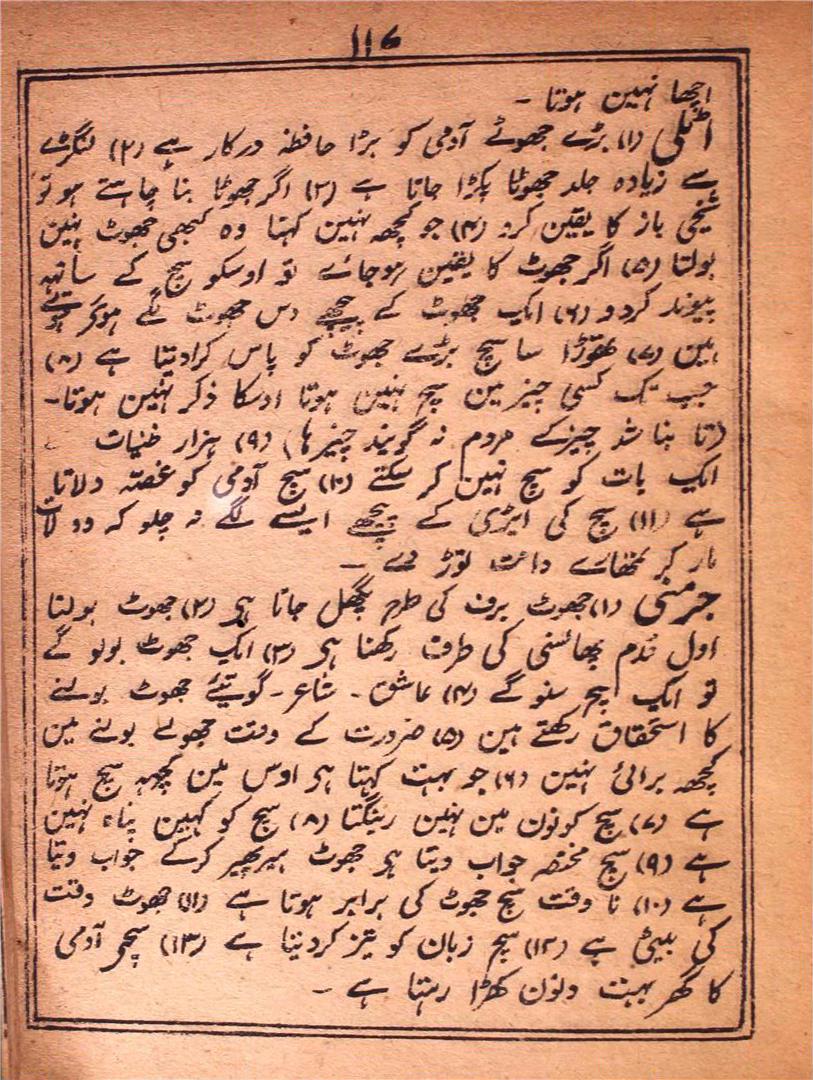 ۱۱۶
اچھا نہین ہوتا ۔
اٹلی (۱) بڑے جھوٹے آدمی کو بڑا حافظہ درکار ہے (۲) لنگڑے
سے زیادہ جلد جھوٹا پکڑا جاتا ہے (۳) اگر جھوٹا بننا چاہتے ہو تو
شیخی باز کا یقین کرو (۴) جو کچھہ نہین کہتا وہ کبھی جھوٹ نہین
بولتا (۵) اگر جھوٹ کا یقین ہوجاے تو اوسکو سچ کے ساتھہ
پیوند کردو (۶) ایک جھوٹ کے پیچھے دس جھوٹ لگے ہوئے ہوتے
ہین (۷) تھوڑا سا سچ بڑے جھوٹ کو پاس کرادیتا ہے (۸)
جب تک کسی چیز مین سچ نہین ہوتا اوسکا ذکر نہین ہوتا۔
(تا نباشد چیزکے مردم نہ گویند چیزہا) (۹) ہزار ظنیات
ایک بات کو سچ نہین کر سکتے (۱۰) سچ آدمی کو غصّہ دلاتا
ہے (۱۱) سچ کی ایڑی کے پیچھے ایسے لگے نہ چلو کہ وہ لات
مار کر تمھارے دانت توڑ دے ۔
جرمنی (۱) جھوٹ برف کی طرح پگھل جاتا ہی (۲) جھوٹ بولنا
اول قدم پھانسی کی طرف رکھنا ہی (۳) ایک جھوٹ بولو گے
تو ایک سچ سنو گے (۴) عاشق ۔ شاعر ۔ گویئے جھوٹ بولنے
کا استحقاق رکھتے ہین (۵) ضرورت کے وقت جھوٹ بولنے مین
کچھہ برائی نہین (۶) جو بہت کہتا ہی اوس مین کچھہ سچ ہوتا
ہے (۷) سچ کونون مین نہین رینگتا (۸) سچ کو کہین پناہ نہین
ہے (۹) سچ مختصر جواب دیتا ہی جھوٹ ہیرپھیر کرکے جواب دیتا
ہے (۱۰) نا وقت سچ جھوٹ کی برابر ہوتا ہے (۱۱) جھوٹ وقت
کی بیٹی ہے (۱۲) سچ زبان کو تیز کردیتا ہے (۱۳) سچے آدمی
کا گھر بہت دنون کھڑا رہتا ہے ۔